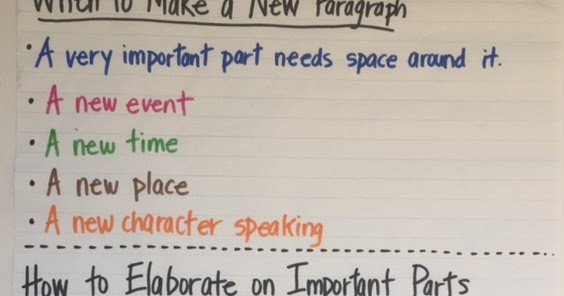 When to Make a New Paragraph
• A very important part needs space around it.
• A new event
• A new time
• A new place
• A new character speaking
How to Elaborate on Important Parts